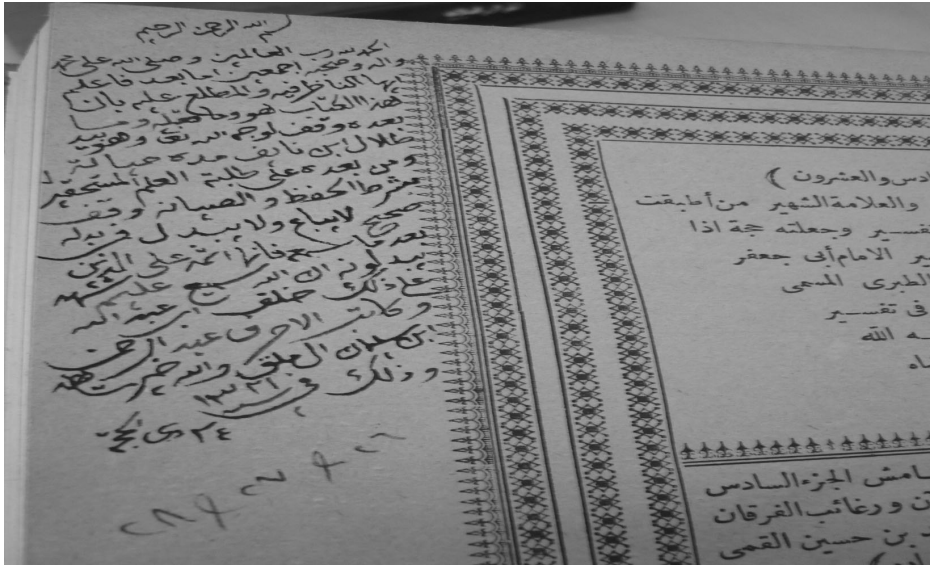 بسم الله الرحمن الرحيم
الحمد لله رب العالمين وصلى الله على محمد
واله وصحبه اجمعين اما بعد فاعلم
ايها الناظر فيه والمطلع عليه بان
هذا الكتاب هو وما
بعده وقف لوجه الله تعالى وهو بيد
طلال ابن نايف مدة حياته
ومن بعده على طلبة العلم المستحقين
بشرط الحفظ والصيانة وقف
صحيح لا يباع ولا يبدل فمن بدله
بعد ما سمعه فانما اثمه على الذين
يبدلونه ان الله سميع عليم شهد
على ذلك خلف ابن عبد الله
وكاتب الاحرف عبد الرحمن
ابن سلمان ال علي والله خير شاهد
وذلك في سنة ١٣٣١
٢٤ ذي الحجة
٢٦ & ٢٧ & ٢٨
ادس والعشرون )
والعلامة الشهير من أطبقت
تفسير وجعلته حجة اذا
ير الامام أبى جعفر
الطبرى المسمى
فى تفسير
ـه الله
ـاه
ـامش الجزء السادس
ن ورغائب الفرقان
بن حسين القمى